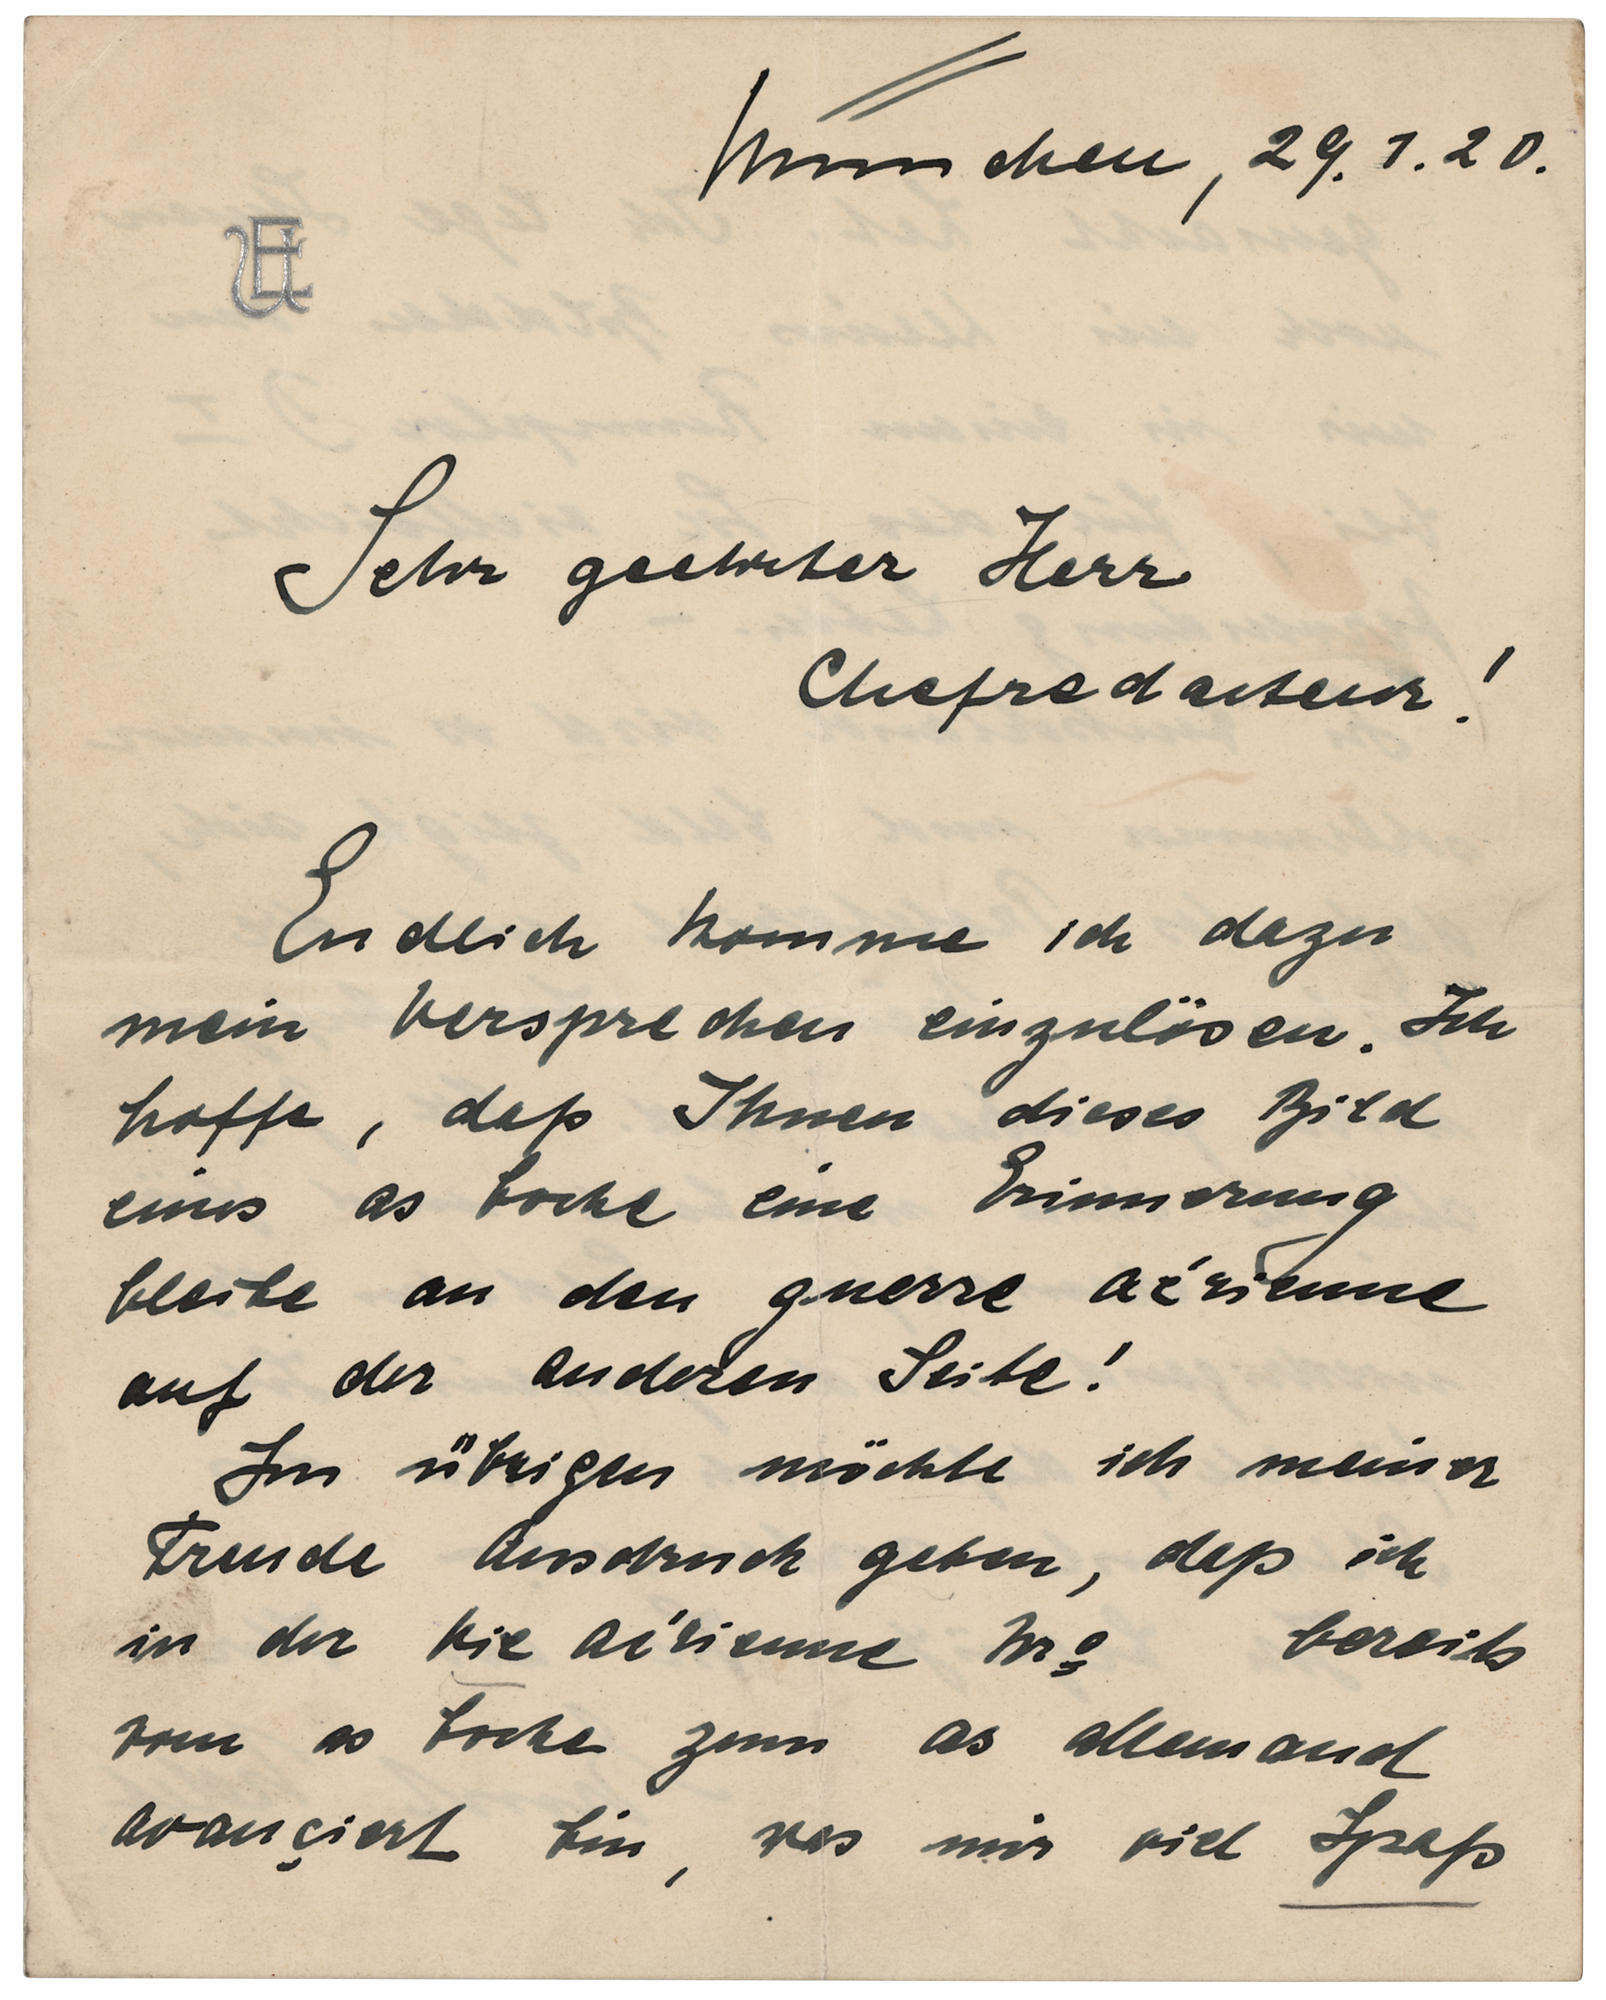 München, 29.1.20.
EU
Sehr geehrter Herr
Chefredacteur!
Endlich komme ich dazu
mein Versprechen einzulösen. Ich
hoffe, daß Ihnen dieses Bild
eines as boche eine Erinnerung
bleibe an den guerre aérienne
auf der anderen Seite!
Im übrigen möchte ich meiner
Freude Ausdruck geben, daß ich
in der Vie aérienne Nro bereits
vom as boche zum as allemand
avançiert bin, was mir viel Spaß